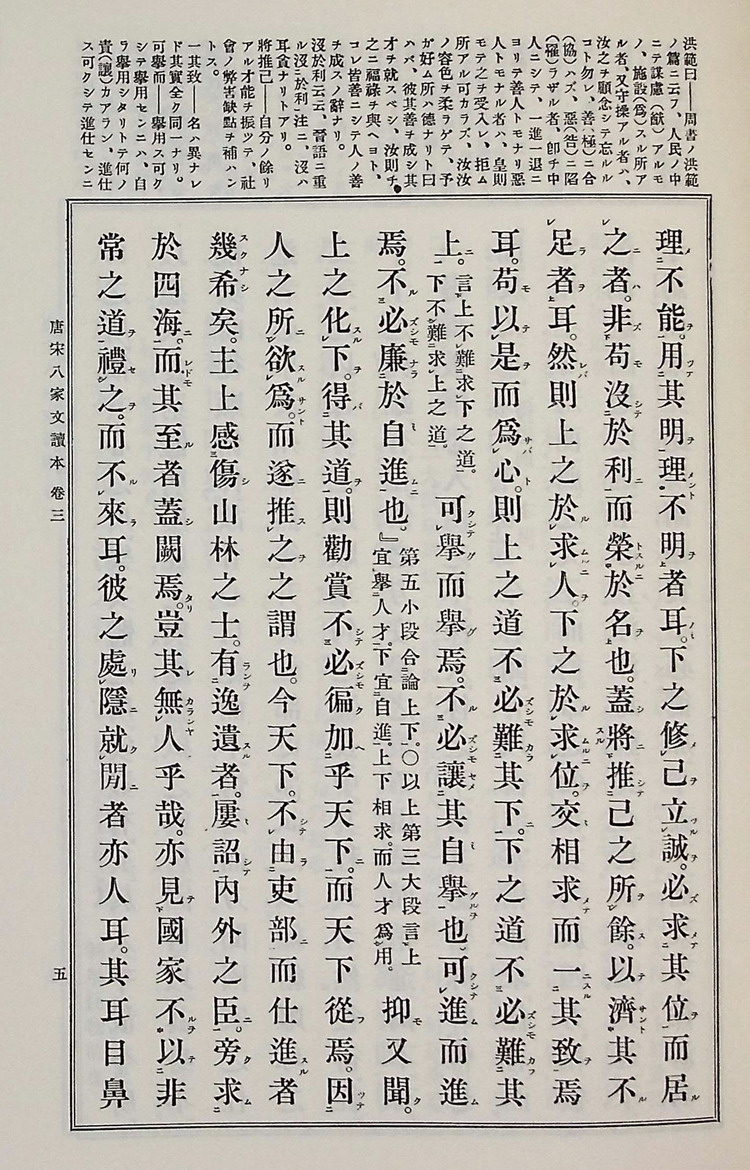 洪範曰――周書ノ洪範
ノ篇ニ云フ、人民ノ中
ニテ謀慮(猷)アルモ
ノ、施設(爲)スル所ア
ル者、又守操アル者ハ、
汝之ヲ顧念シテ忘ルル
コト勿レ、善(極)ニ合
(協)ハズ、惡(咎)ニ陷
(罹)ラザル者、卽チ中
人ニシテ、一進一退ニ
ヨリテ善人トモナリ惡
人トモナル者ハ、皇則
モテ之ヲ受入レ、拒ム
所アル可カラズ、汝汝
ノ容色ヲ柔ラゲテ、予
ガ好ム所ハ德ナリト曰
ハバ、彼其善ヲ成シ其
才ヲ就スベシ、汝則チ
之ニ福祿ヲ與ヘヨト、
コレ皆善ニシテ人ノ善
ヲ成スノ辭ナリ。
沒於利云云、晉語ニ重
ル沒ニ於利ニ注ニ、沒ハ
耳食ナリトアリ。
將推己――自分ノ餘リ
アル才能ヲ振ツテ、社
會ノ弊害缺點ヲ補ハン
トス。
一其致――名ハ異ナレ
ド其實全ク同一ナリ。
可擧而――擧用ス可ク
シテ擧用センニハ、自
ラ擧用シタリトテ何ノ
責(讓)カアラン、進仕
ス可クシテ進仕センニ
理不能。用其明。理不明者耳。下之修己立誠。必求其位而居
之者。非苟沒於利而榮於名也。蓋將推己之所餘。以濟其不
足者耳。然則上之於求人。下之於求位。交相求而一其致焉
耳。苟以是而爲心。則上之道不必難其下。下之道不必難其
上。言上不難求下之道。下不難求上之道。可擧而擧焉。不必讓其自擧也。可進而進
焉。不必廉於自進也。』第五小段合論上下。〇以上第三大段言上宜擧人才。下宜自進。上下相求。而人才爲用。抑又聞。
上之化下。得其道。則勸賞不必徧加乎天下。而天下從焉。因
人之所欲爲。而遂推之之謂也。今天下。不由吏部而仕進者
幾希矣。主上感傷山林之士。有逸遺者。屢詔內外之臣。旁求
於四海。而其至者蓋闕焉。豈其無人乎哉。亦見國家不以非
常之道禮之。而不來耳。彼之處隱就閒者亦人耳。其耳目鼻
唐宋八家文讀本 卷三
五